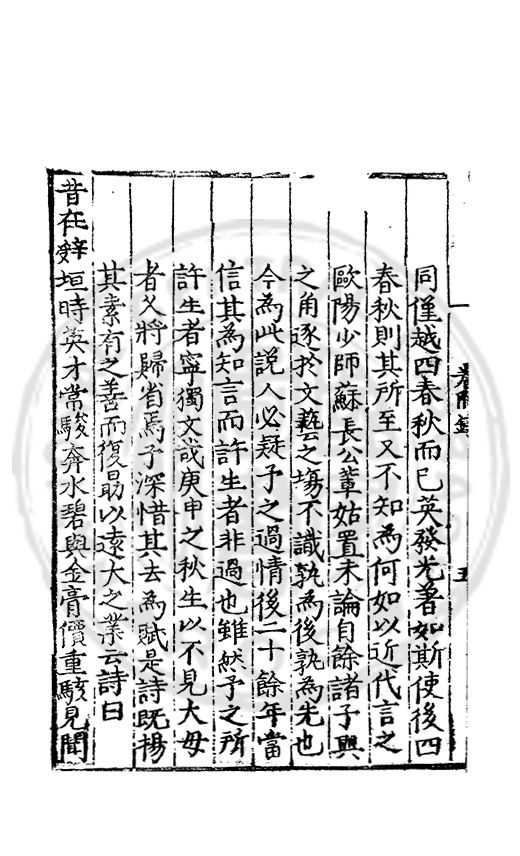 同僅越四春秋而已英發光著如斯使後四
春秋則其所至又不知為何如以近代言之
歐陽少師蘇長公輩姑置未論自餘諸子與
之角逐於文藝之場不識孰為後孰為先也
今為此說人必疑予之過情後二十餘年當
信其為知言而許生者非過也雖然予之所
許生者寧獨文哉庚申之秋生以不見大母
者久將歸省焉予深惜其去為賦是詩既揚
其素有之善而復勗以遠大之業云詩曰
昔在辭垣時英才常駿奔水碧與金膏價重駭見聞